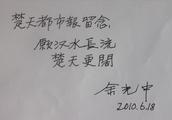 楚天都市報留念,
願汉水長流
楚天更闊
余光中
2010.6.18